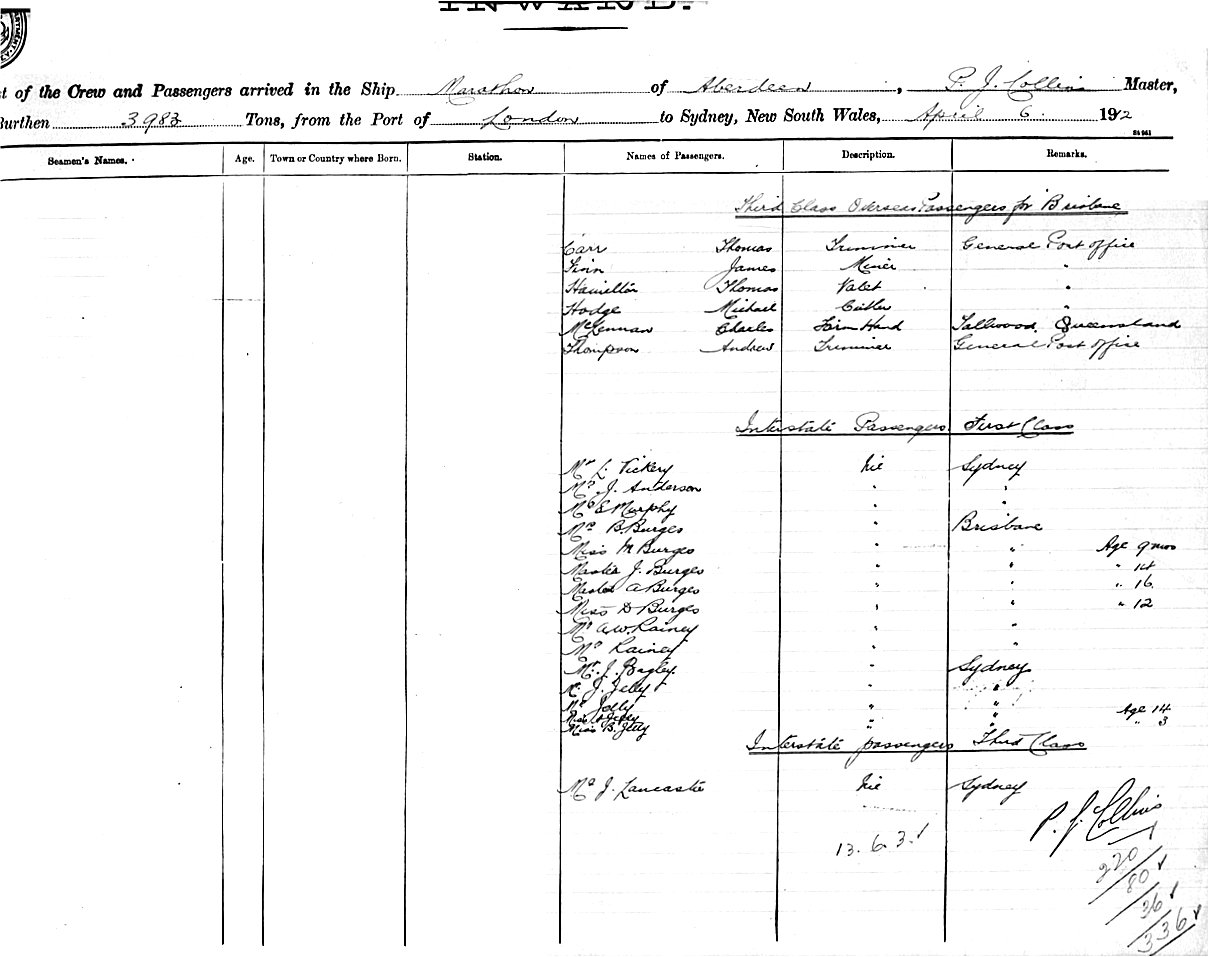 INWARD.
t of the Crew and Passengers arrived in the Ship Marathon of Aberdeen, P. J. Collins Master,
Burthen 3983 Tons, from the Port of London to Sydney, New South Wales, April 6. 1912
Seamen's Names. Age. Town or Country where Born. Station. Names of Passengers. Description. Remarks.
Third Class Overseas Passengers for Brisbane
Carr Thomas Trimmer General Post office
Finn James Miner "
Hamilton Thomas Valet "
Hodge Michael "
McLennan Charles Farm Hand Tallwood, Queensland
Thompson Andrew Trimmer General Post office
Interstate Passengers First Class
Mr L. Vickery Nil Sydney
J. Anderson " "
E Murphy " "
Mrs B. Burges " Brisbane
Miss M Burges " " Age 9 mos
Master J. Burges " " " 14
Master A Burges " " " 16
Miss D Burges " " " 12
Mr A.W. Rainey " "
Mrs Rainey " "
Mr. J. Bagley. " Sydney
Mr J. Jelly " "
Mrs Jelly " " Age 14
Miss Jelly " " " 3
Miss B. Jelly
Interstate passengers Third Class
J. Lancaster Nil Sydney
P. J. Collins
13. 6. 3.
220
80
36
336